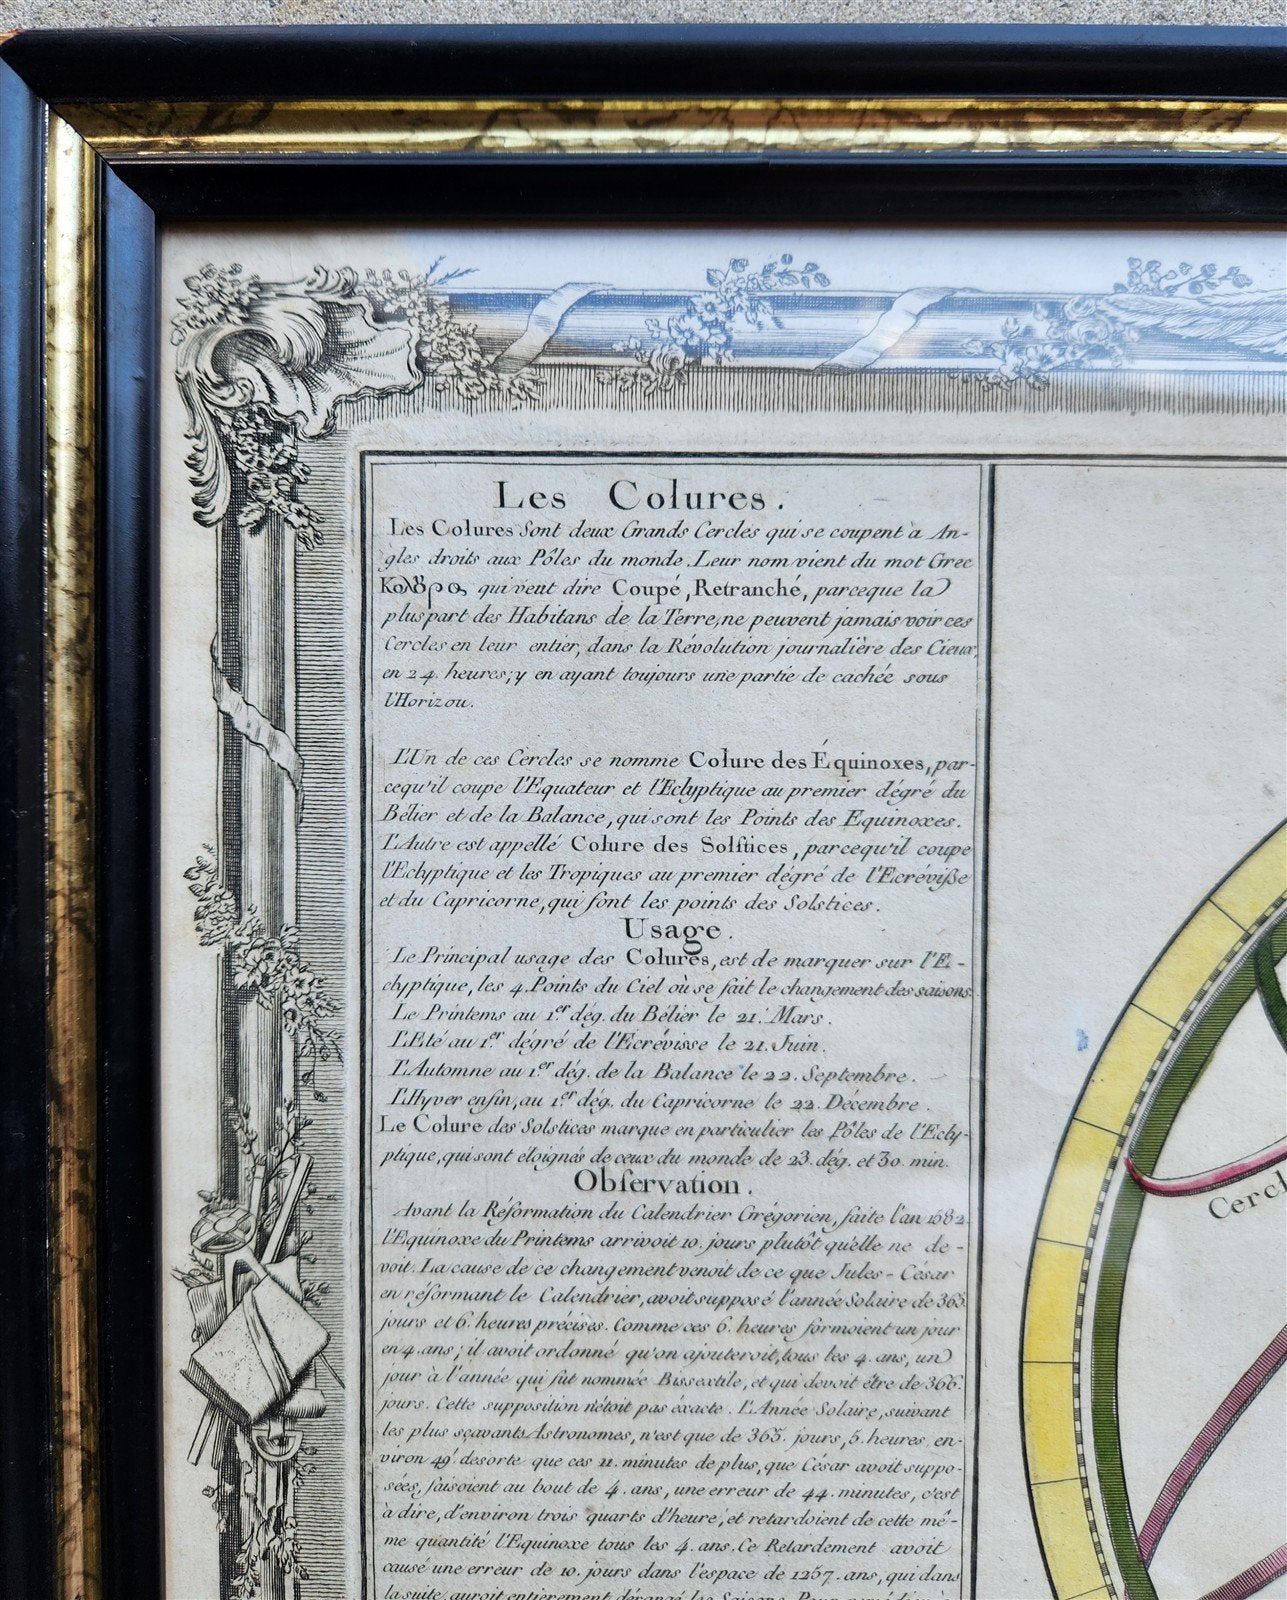 Les Colures.
Les Colures sont deux Grands Cercles qui se coupent à An-
gles droits aux Pôles du monde. Leur nom vient du mot Grec
Κολȣρος qui veut dire Coupé, Retranché, parceque la
pluspart des Habitans de la Terre, ne peuvent jamais voir ces
Cercles en leur entier, dans la Révolution journalière des Cieux,
en 24. heures; y en ayant toujours une partie de cachée sous
l'Horizon.
L'Un de ces Cercles se nomme Colure des Équinoxes, par-
cequ'il coupe l'Equateur et l'Eclyptique au premier dégré du
Bélier et de la Balance, qui sont les Points des Equinoxes.
L'Autre est appellé Colure des Solstices, parcequ'il coupe
l'Eclyptique et les Tropiques au premier dégré de l'Ecrévisse
et du Capricorne, qui sont les points des Solstices.
Usage.
Le Principal usage des Colures, est de marquer sur l'E-
clyptique, les 4. Points du Ciel où se fait le changement des saisons.
Le Printems au 1.er dég. du Bélier le 21. Mars.
L'Eté au 1.er dégré de l'Ecrévisse le 21. Juin.
L'Automne au 1.er dég. de la Balance le 22. Septembre.
L'Hyver enfin, au 1.er dég. du Capricorne le 22. Décembre.
Le Colure des Solstices marque en particulier les Pôles de l'Ecly-
ptique, qui sont éloignés de ceux du monde de 23. dég. et 30. min.
Observation.
Avant la Réformation du Calendrier Grégorien, faite l'an 1682.
l'Equinoxe du Printems arrivoit 10. jours plutôt qu'elle ne de-
voit. La cause de ce changement venoit de ce que Jules-César
en réformant le Calendrier, avoit supposé l'année Solaire de 365.
jours et 6. heures précises. Comme ces 6. heures formoient un jour
en 4. ans; il avoit ordonné qu'on ajouteroit, tous les 4. ans, un
jour à l'année qui fut nommée Bissextile, et qui devoit être de 366.
jours. Cette supposition n'étoit pas éxacte. L'Année Solaire, suivant
les plus sçavants Astronomes, n'est que de 365. jours, 5. heures, en-
viron 49' desorte que ces 11. minutes de plus, que César avoit suppo-
sées, faisoient au bout de 4. ans, une erreur de 44. minutes, c'est
à dire, d'environ trois quarts d'heure, et retardoient de cette mê-
me quantité l'Equinoxe tous les 4. ans. Ce Retardement avoit
causé une erreur de 10. jours dans l'espace de 1257. ans, qui dans
la suite auroit entièrement dérangé les Saisons.
Cercl